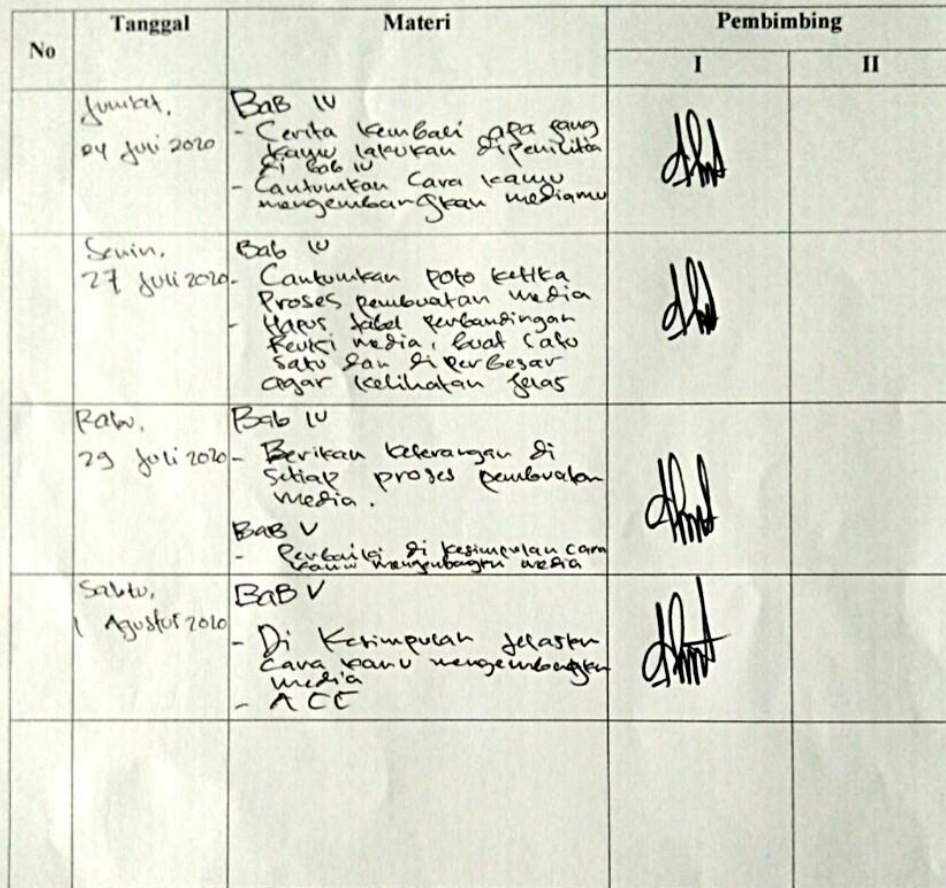 No
Tanggal
Materi
Pembimbing
I
II
Jumat,
24 Juli 2020
Bab IV
- Cerita kembali apa yang
kamu lakukan dipenilitia
di bab IV
- Cantumkan Cara kamu
mengembangkan mediamu
Senin,
27 Juli 2020
Bab IV
- Cantumkan poto ketika
Proses pembuatan media
- Hapus tabel perbandingan
Revisi media, buat satu
satu dan di perbesar
agar kelihatan jelas
Rabu,
29 Juli 2020
Bab IV
- Berikan keterangan di
setiap proses pembuatan
media.
BAB V
- Perbaiki di kesimpulan cara
kamu mengembagkn media
Sabtu,
1 Agustus 2020
BaB V
- Di Kesimpulan jelaskn
Cara kamu mengembangkn
media
- ACC